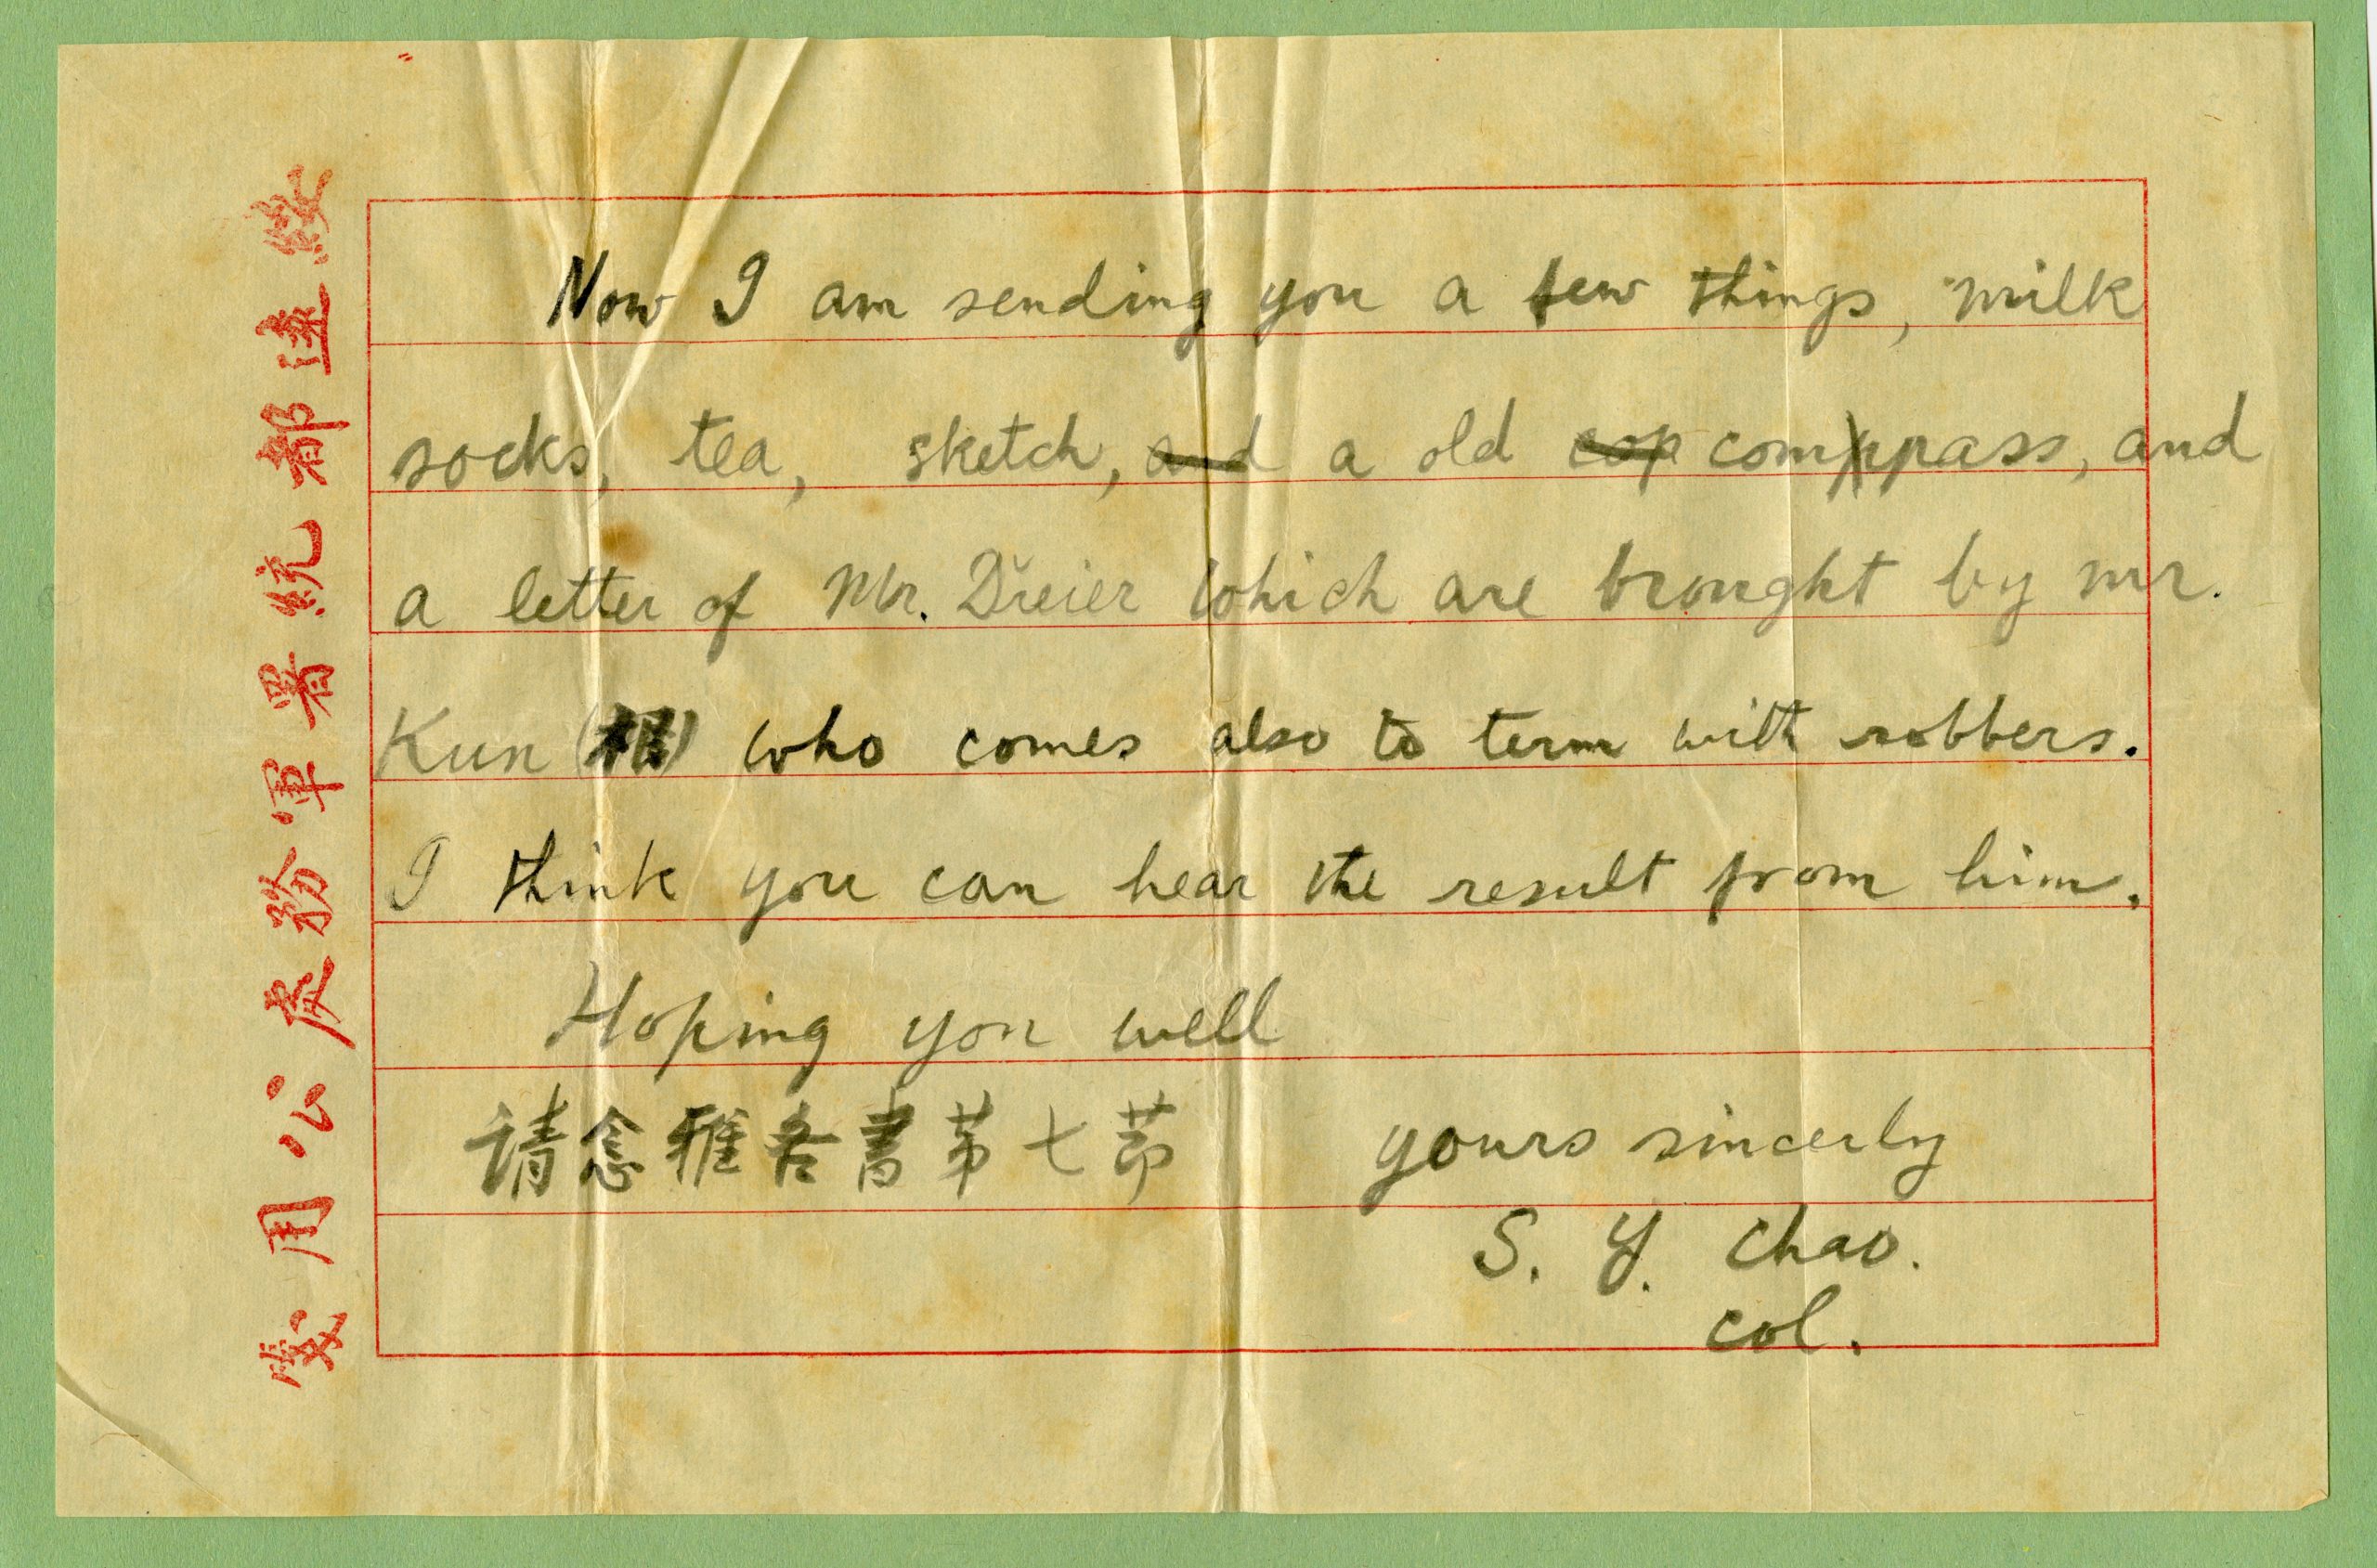 綏遠都統署軍務處公用箋
Now I am sending you a few things, milk
socks, tea, sketch, and a old cop compass, and
a letter of Mr. Dreier which are brought by mr.
Kun (根) who comes also to term with robbers.
I think you can hear the result from him.
Hoping you well
請念雅各書苐七莭 yours sincerly
S. Y. Chao.
col.